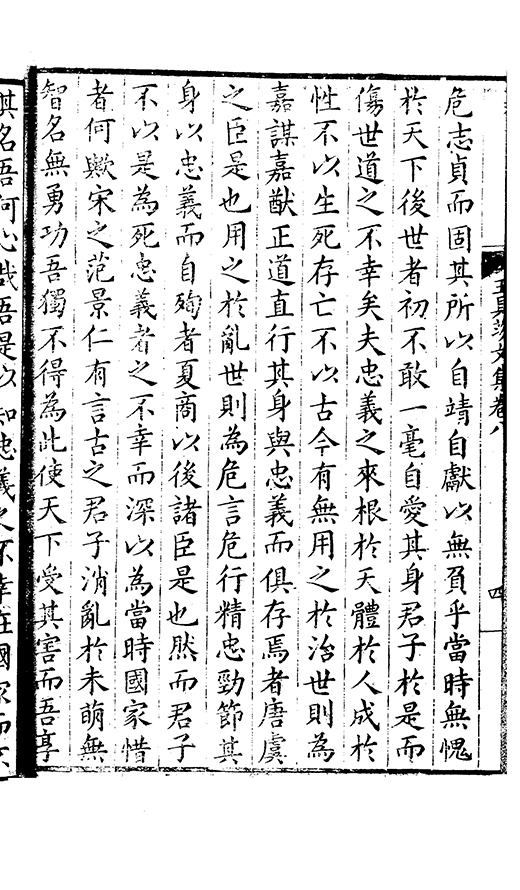 文集卷八
四
危志貞而固其所以自靖自獻以無負乎當時無愧
於天下後世者初不敢一毫自愛其身君子於是而
傷世道之不幸矣夫忠義之來根於天體於人成於
性不以生死存亡不以古今有無用之於治世則為
嘉謀嘉猷正道直行其身與忠義而俱存焉者唐虞
之臣是也用之於亂世則為危言危行精忠勁節其
身以忠義而自殉者夏商以後諸臣是也然而君子
不以是為死忠義者之不幸而深以為當時國家惜
者何歟宋之范景仁有言古之君子消亂於未萌無
智名無勇功吾獨不得為此使天下受其害而吾享
其名吾何心哉吾是以知忠義之不幸在國家而不